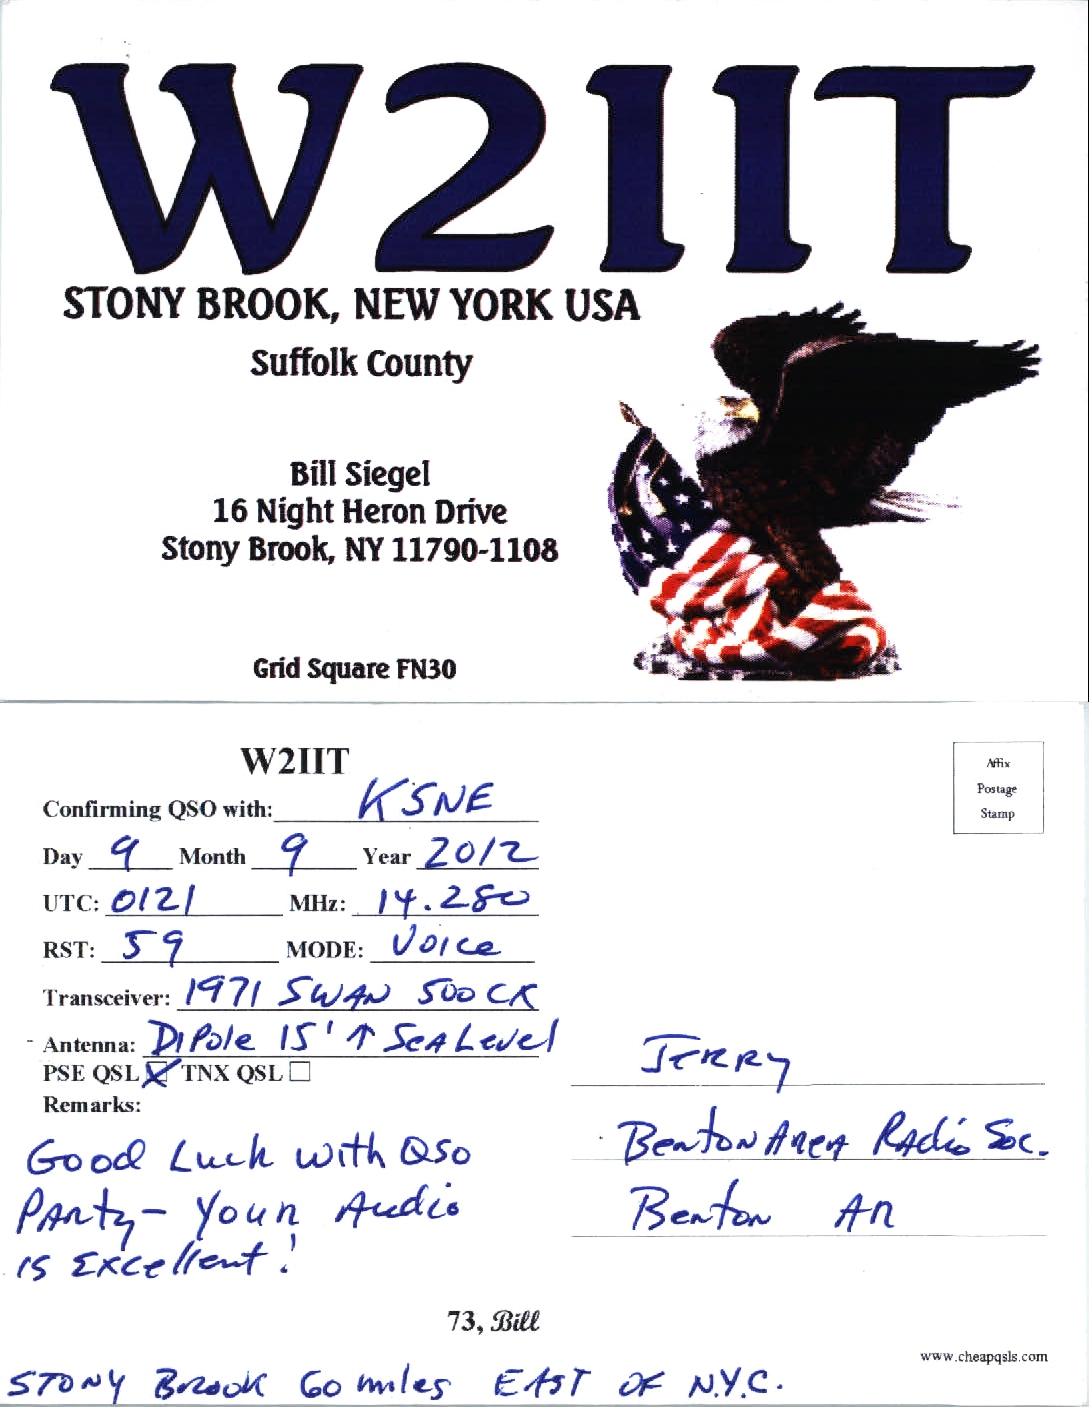 W2IIT
STONY BROOK, NEW YORK USA
Suffolk County
Bill Siegel
16 Night Heron Drive
Stony Brook, NY 11790-1108
Grid Square FN30
W2IIT
Affix
Postage
Stamp
Confirming QSO with: K5NE
Day 9 Month 9 Year 2012
UTC: 0121 MHz: 14.280
RST: 59 MODE: Voice
Transceiver: 1971 SWAN 500 CX
Antenna: DiPole 15' ↑ SeA Level
PSE QSL ☑ TNX QSL ☐
Remarks:
Good Luck with QSO
PArty - Your Audio
is Excellent!
73, Bill
JERRY
Benton AreA RAdio Soc.
Benton AR
www.cheapqsls.com
STONY BrooK 60 miles EAST OF N.Y.C.